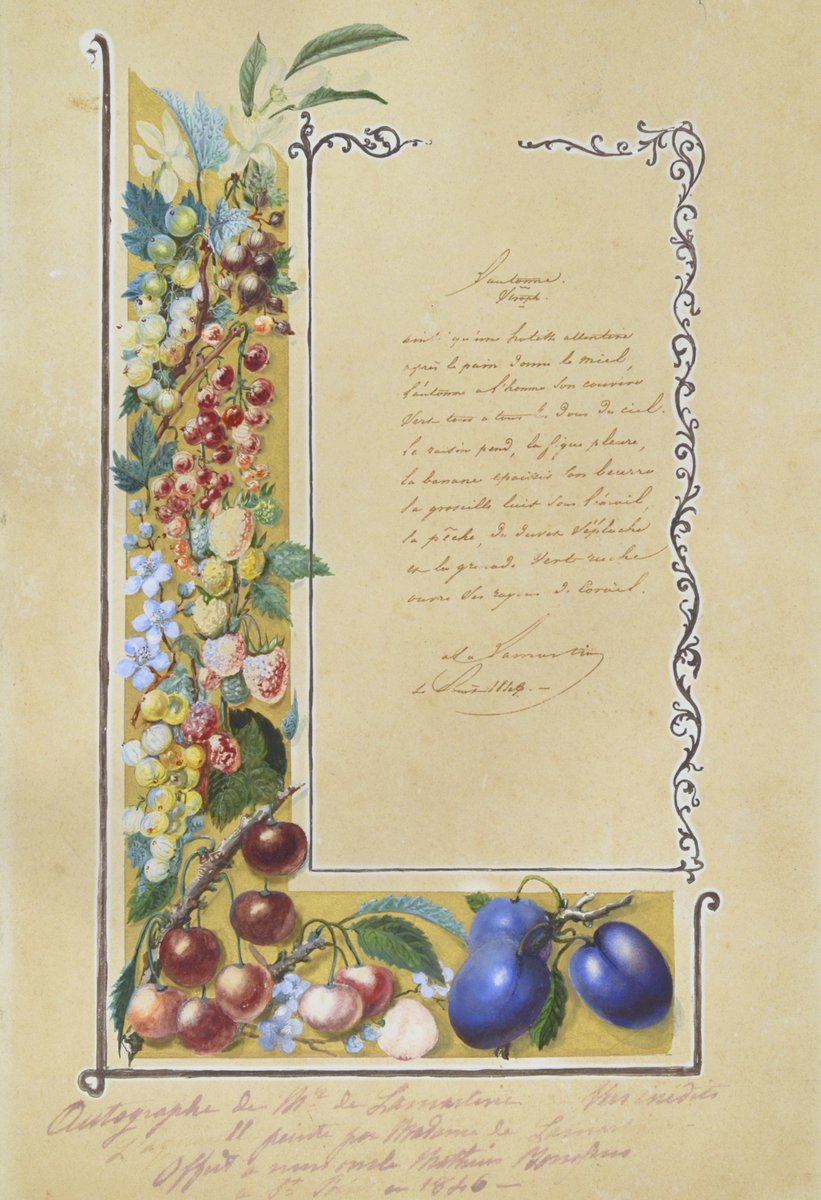 L'automne.
Stroph.
ainsi qu'une hotesse attentive
après le pain donne le miel,
l'automne a l'homme son convive
Verse tour a tour les dons du ciel.
le raisin pend, la figue pleure,
la banane epaissit son beurre
la groseille luit sous l'émail,
la pêche, de duvet s'épluche
et la grenade verte ruche
ouvre ses rayons de Corail.
Lamartine
1846. —
Autographe de Mr de Lamartine Vers inédits
L'aq ll peinte par Madame de Lamar
Offert à mon oncle Mathieu
a St en 1846 —